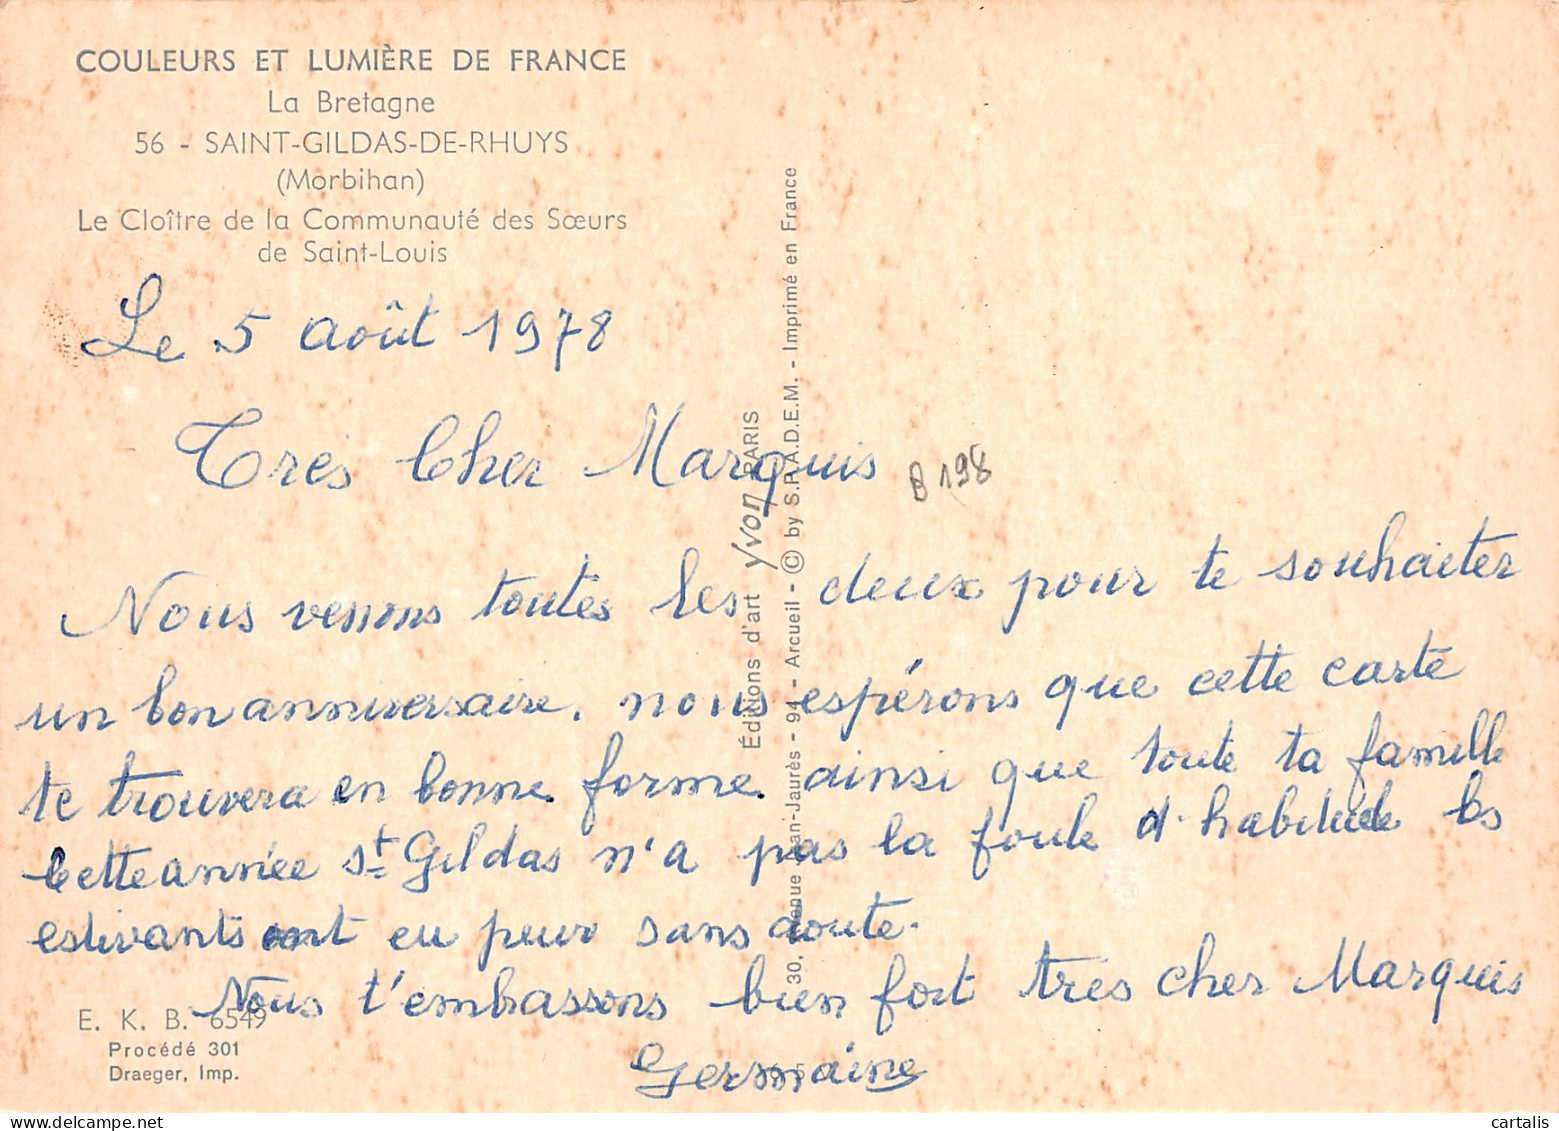 COULEURS ET LUMIÈRE DE FRANCE
La Bretagne
56 - SAINT-GILDAS-DE-RHUYS
(Morbihan)
Le Cloître de la Communauté des Sœurs
de Saint-Louis
Le 5 août 1978
Très Cher Marquis
B 198
Nous venons toutes les deux pour te souhaiter
un bon anniversaire. nous espérons que cette carte
te trouvera en bonne forme. ainsi que toute ta famille
Cette année St Gildas n'a pas la foule d'habitude les
estivants ont eu peur sans doute.
Nous t'embrassons bien fort très cher Marquis
Germaine
E. K. B. 6549
Procédé 301
Draeger, Imp.
Éditions d'art yvon PARIS
30, Avenue Jean-Jaurès - 94 - Arcueil - © by S.P.A.D.E.M. - Imprimé en France
cartalis